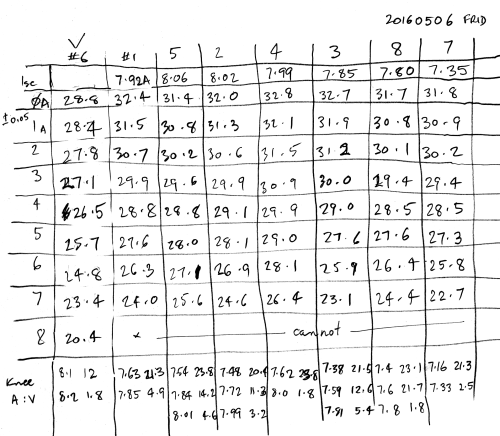 20160506 FRID
#6 #1 5 2 4 3 8 7
Isc 7.92A 8.06 8.02 7.99 7.85 7.80 7.35
0A 28.8 32.4 31.4 32.0 32.8 32.7 31.7 31.8
±0.05
1A 28.4 31.5 30.8 31.3 32.1 31.9 30.8 30.9
2 27.8 30.7 30.2 30.6 31.5 31.2 30.1 30.2
3 27.1 29.9 29.6 29.9 30.9 30.0 29.4 29.4
4 26.5 28.8 28.8 29.1 29.9 29.0 28.5 28.5
5 25.7 27.6 28.0 28.1 29.0 27.6 27.6 27.3
6 24.8 26.3 27.1 26.9 28.1 25.9 26.4 25.8
7 23.4 24.0 25.6 24.6 26.4 23.1 24.4 22.7
8 20.4 × cannot
Knee 8.1 12 7.63 21.3 7.54 23.8 7.48 20.4 7.62 23.8 7.38 21.5 7.4 23.1 7.16 21.3
A:V 8.2 1.8 7.85 4.9 7.84 14.2 7.72 11.3 8.0 1.8 7.59 12.6 7.6 21.7 7.33 2.5
8.01 4.6 7.99 3.2 7.81 5.4 7.8 1.8